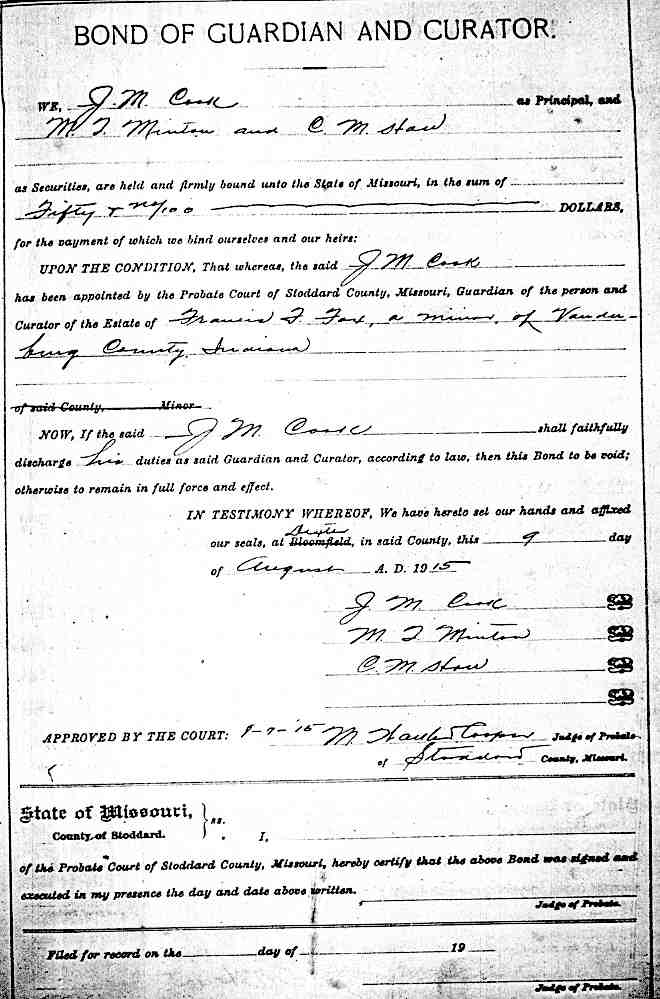 BOND OF GUARDIAN AND CURATOR.
WE, J. M. Cook as Principal, and
M. T. Minton and C. M. Shaw
as Securities, are held and firmly bound unto the State of Missouri, in the sum of
Fifty + no/100 DOLLARS,
for the payment of which we bind ourselves and our heirs:
UPON THE CONDITION, That whereas, the said J M Cook
has been appointed by the Probate Court of Stoddard County, Missouri, Guardian of the person and
Curator of the Estate of Francis F. Fox, a minor, of Vander-
burg County, Indiana
of said County, Minor
NOW, If the said J M. Cook shall faithfully
discharge his duties as said Guardian and Curator, according to law, then this Bond to be void;
otherwise to remain in full force and effect.
IN TESTIMONY WHEREOF, We have hereto set our hands and affixed
Dexter
our seals, at Bloomfield, in said County, this 9 day
of August A. D. 1915
J M Cook
M. T Minton
C. M. Shaw
APPROVED BY THE COURT: 9-7-'15 M. Cooper Judge of Probate
of Stoddard County, Missouri.
State of Missouri, } ss.
County of Stoddard.
I,
of the Probate Court of Stoddard County, Missouri, hereby certify that the above Bond was signed and
executed in my presence the day and date above written.
Judge of Probate.
Filed for record on the day of 19
Judge of Probate.